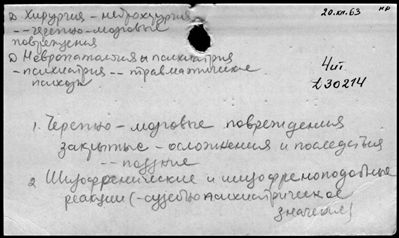 D Хирургия - нейрохирургия
-- черепно-мозговые
повреждения
D Невропатология и психиатрия
- психиатрия -- травматические
психозы
20.XII.63
нр
4шт.
L30214
1. Черепно-мозговые повреждения
закрытые - осложнения и последствия
-- поздние
2 Шизофренические и шизофреноподобные
реакции (-судебнопсихиатрическое
значение)